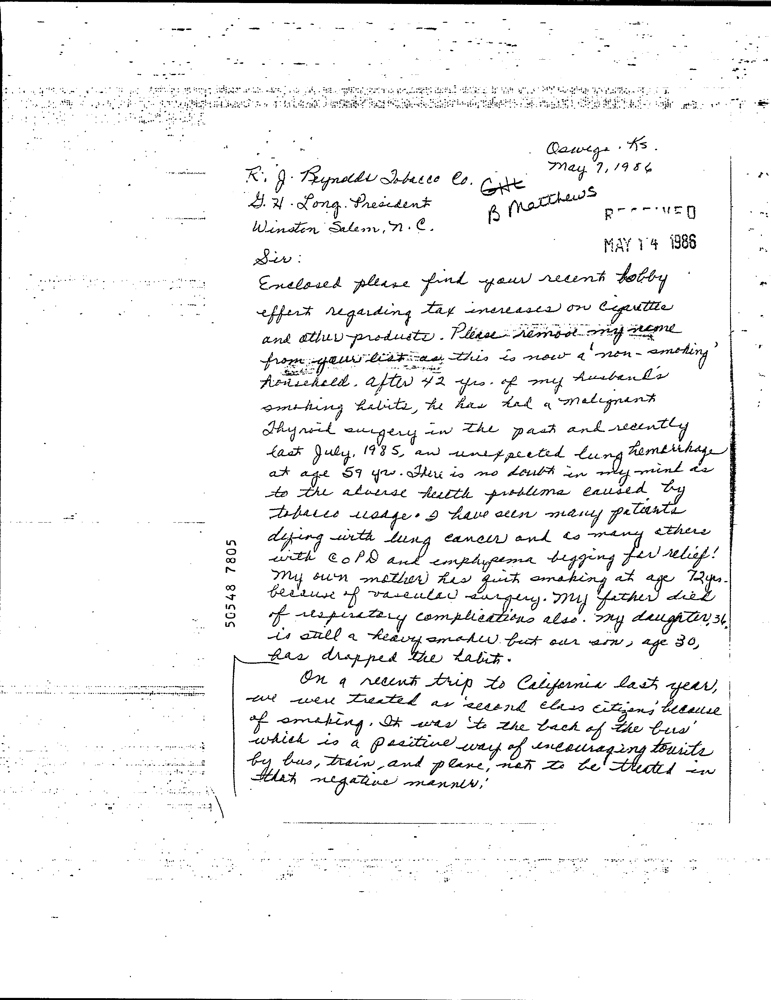 Oswego. Ks.
May 7, 1986
R. J. Reynolds Tobacco Co.
G. H. Long. President
Winston Salem, N. C.
B Matthews
MAY 14 1986
Sir:
Enclosed please find your recent lobby
effort regarding tax increases on Cigarettes
and other products. Please remove my name
from your list as, this is now a 'non-smoking'
household. After 42 yrs. of my husband's
smoking habits, he has had a malignant
Thyroid surgery in the past and recently
last July, 1985, an unexpected lung hemorrhage
at age 59 yr. There is no doubt in my mind as
to the adverse health problems caused by
tobacco usage. I have seen many patients
dying with lung cancer and as many others
with COPD and emphysema begging for relief!
My own mother has quit smoking at age 72 yrs.
because of vascular surgery. My father died
of respiratory complications also. My daughter, 36,
is still a heavy smoker but our son, age 30,
has dropped the habit.
On a recent trip to California last year,
we were treated as 'second class citizens' because
of smoking. It was 'to the back of the bus'
which is a positive way of encouraging tourits
by bus, train, and plane, not to be treated in
that negative manner;
50548 7805